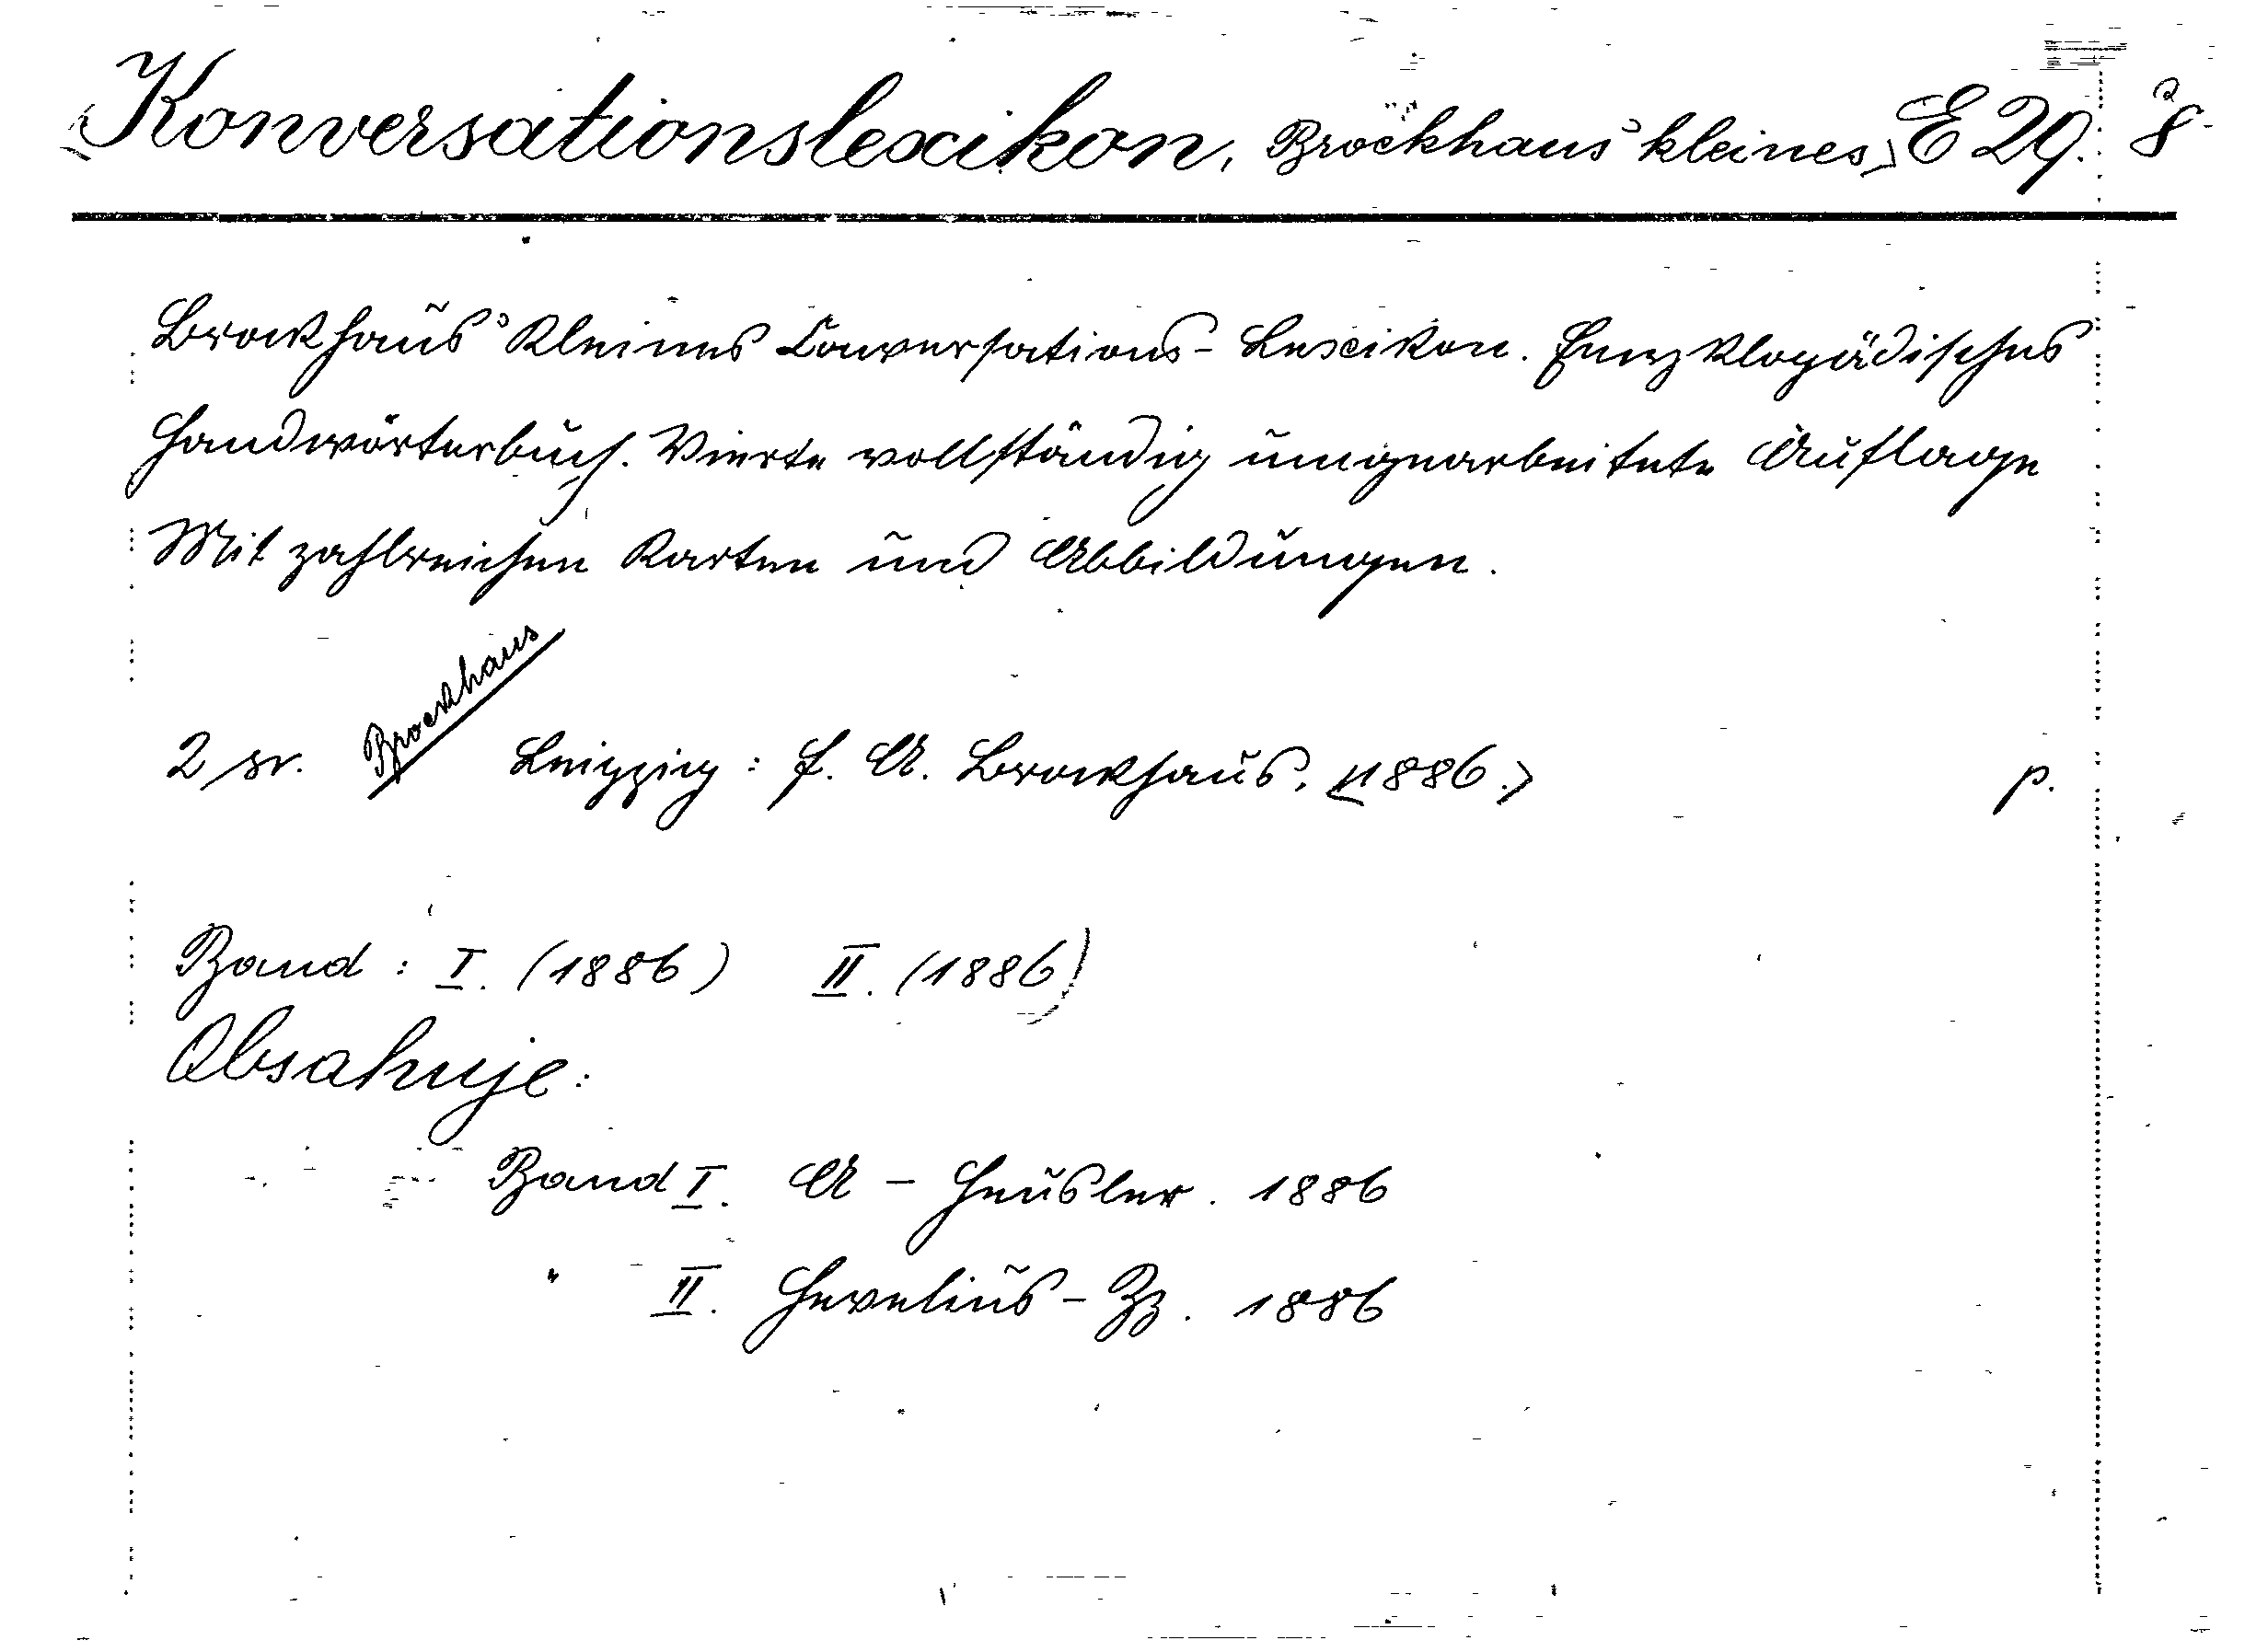 Konversationslexikon, Brockhaus' kleines, E 29. 8
Brockhaus' Kleines Conversations-Lexikon. Encyklopädisches
Handwörterbuch. Vierte vollständig umgearbeitete Auflage
Mit zahlreichen Karten und Abbildungen.
Brockhaus
2 sv. Leipzig: F. A. Brockhaus, <1886.> p.
Band: I. (1886) II. (1886)
Obsahuje:
Band I. A - Heusler. 1886
" II. Hevelius - Zz. 1886